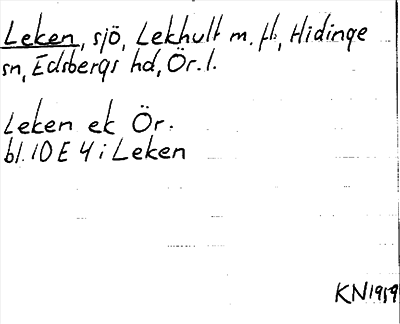 Leken, sjö, Lekhult m. fl., Hidinge
sn, Edsbergs hd, Ör. l.
Leken ek Ör.
bl. 10 E 4 i Leken
KN 1959